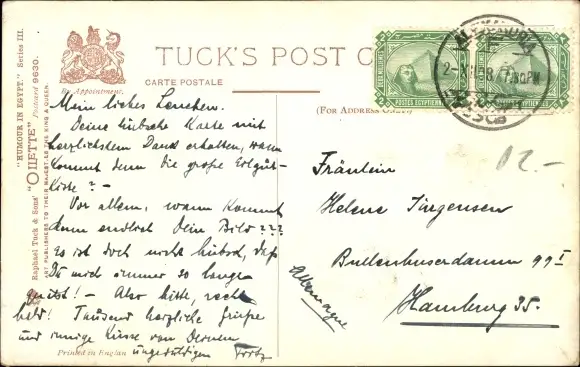 "HUMOUR IN EGYPT." Series III.
Postcard 9630.
Raphael Tuck & Sons' "OILETTE"
ART PUBLISHERS TO THEIR MAJESTIES THE KING & QUEEN.
By Appointment.
TUCK'S POST C
CARTE POSTALE
(For Address O
POSTES EGYPTIENNES
2-XII 08 7 30PM
12.-
Mein liebes Lenchen.
Deine hübsche Karte mit
herzlichstem Dank erhalten, wann
kommt denn die große Eilgut-
kiste? -
Vor allem, wann kommt
denn endlich Dein Bild???
Es ist doch nicht hübsch, daß
Du mich immer so lange
! - Also bitte, recht
bald! Tausend herzliche Grüße
und innige Küsse von Deinem
ungeduldigen Fritz
Printed in England
Fräulein
Helene Jürgensen
Bullenhuserdamm 99 I
Hamburg 35.
Allemagne